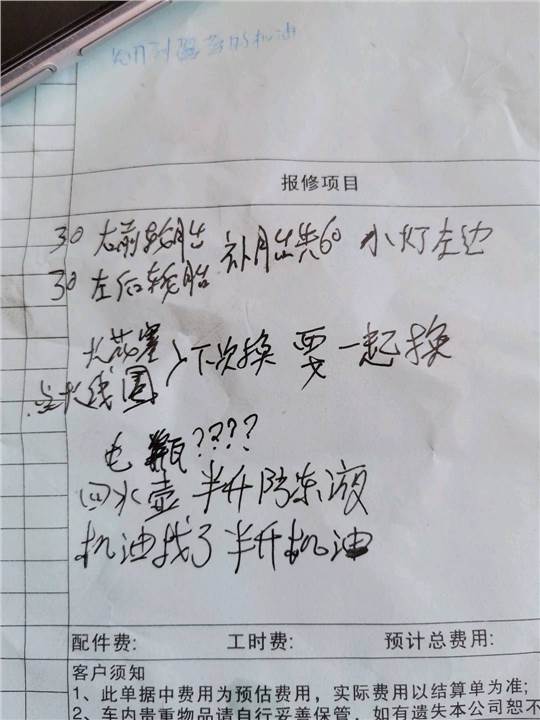 机油
报修项目
30 右前轮胎 补胎共60 小灯左边
30 左后轮胎
火花塞 下次换 要一起换
点火线圈
电瓶????
回水壶 半升防冻液
机油找了半升机油
配件费: 工时费: 预计总费用:
客户须知
1、此单据中费用为预估费用，实际费用以结算单为准;
2、车内贵重物品请自行妥善保管，如有遗失本公司恕不